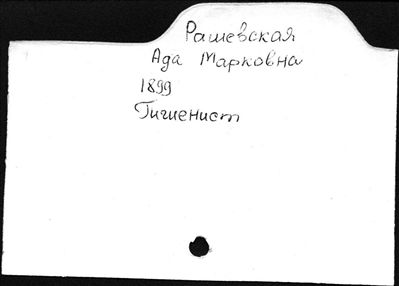 Рашевская
Ада Марковна
1899
Гигиенист